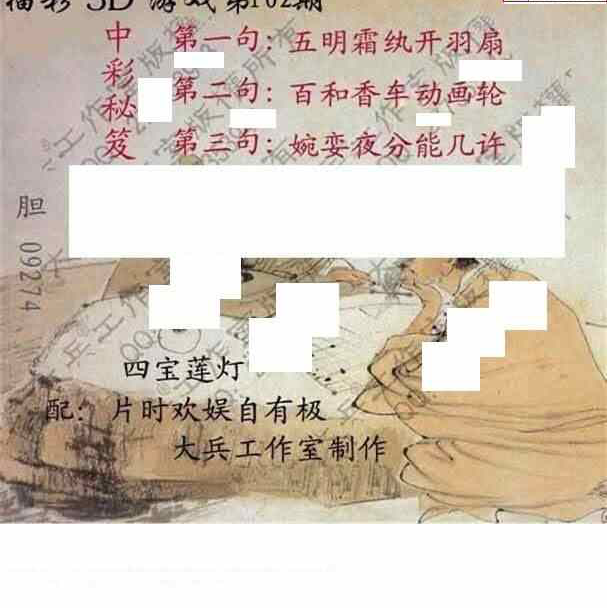 福彩 3D 游戏第102期
中彩秘笈
第一句：五明霜纨开羽扇
第二句：百和香车动画轮
第三句：婉娈夜分能几许
胆 09274
四宝莲灯
配：片时欢娱自有极
大兵工作室制作